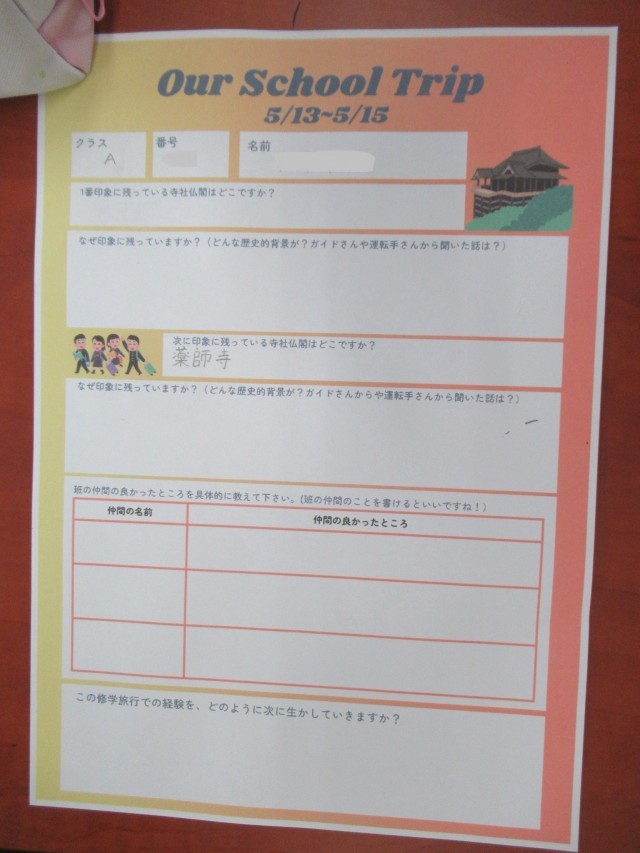 Our School Trip
5/13~5/15
クラス
A
番号
名前
1番印象に残っている寺社仏閣はどこですか？
なぜ印象に残っていますか？（どんな歴史的背景が？ガイドさんや運転手さんから聞いた話は？）
次に印象に残っている寺社仏閣はどこですか？
薬師寺
なぜ印象に残っていますか？（どんな歴史的背景が？ガイドさんからや運転手さんから聞いた話は？）
班の仲間の良かったところを具体的に教えて下さい。(班の仲間のことを書けるといいですね！）
仲間の名前 仲間の良かったところ
この修学旅行での経験を、どのように次に生かしていきますか？